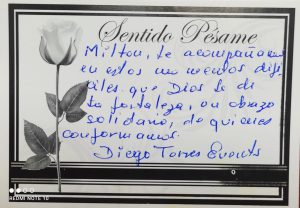 Sentido Pésame
Milton, te acompañamos
en estos momentos difí
ciles que Dios te de
la fortaleza, un abrazo
solidario, de quienes
conformamos.
Diego Torres Events
REDMI NOTE 10